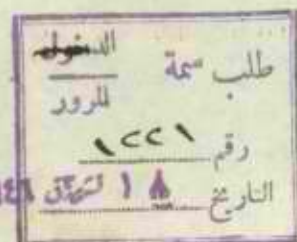 طلب سمة الدخول
للمرور
رقم ١٢٢١
التاريخ ١٨